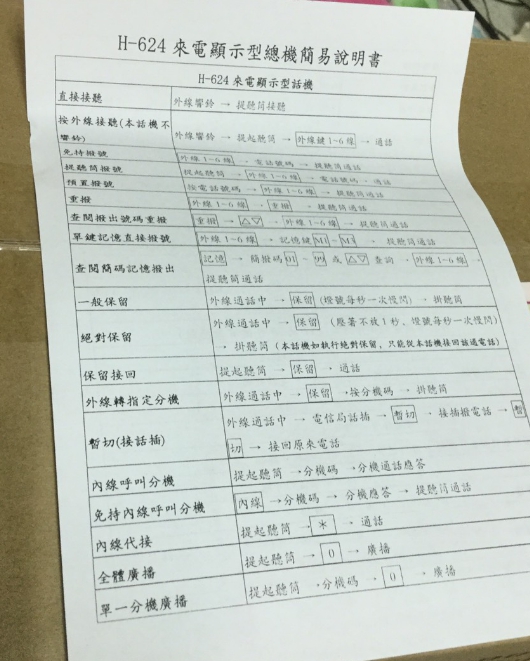 H-624 來電顯示型總機簡易說明書
H-624 來電顯示型話機
直接接聽 外線響鈴 → 提聽筒接聽
按外線接聽(本話機不
響鈴) 外線響鈴 → 提起聽筒 → 外線鍵1~6線 → 通話
免持撥號 外線1~6線 → 電話號碼 → 提聽筒通話
提聽筒撥號 提起聽筒 → 外線1~6線 → 電話號碼 → 通話
預置撥號 按電話號碼 → 外線1~6線 → 提聽筒通話
重撥 外線1~6線 → 重撥 → 提聽筒通話
查閱撥出號碼重撥 重撥 → △▽ → 外線1~6線 → 提聽筒通話
單鍵記憶直接撥號 外線1~6線 → 記憶鍵 M1 ~ M3 → 提聽筒通話
查閱簡碼記憶撥出 記憶 → 簡撥碼 01 ~ 99 或 △▽ 查詢 → 外線1~6線 →
提聽筒通話
一般保留 外線通話中 → 保留 (燈號每秒一次慢閃) → 掛聽筒
絕對保留 外線通話中 → 保留 (壓著不放1秒，燈號每秒一次慢閃)
→ 掛聽筒 (本話機如執行絕對保留，只能從本話機接回該通電話)
保留接回 提起聽筒 → 保留 → 通話
外線轉指定分機 外線通話中 → 保留 →按分機碼 → 掛聽筒
暫切(接話插) 外線通話中 → 電信局話插 → 暫切 → 接插撥電話 → 暫
切 → 接回原來電話
內線呼叫分機 提起聽筒 →分機碼 →分機通話應答
免持內線呼叫分機 內線 →分機碼 → 分機應答 → 提聽筒通話
內線代接 提起聽筒 → * → 通話
全體廣播 提起聽筒 → 0 → 廣播
單一分機廣播 提起聽筒 →分機碼 → 0 → 廣播